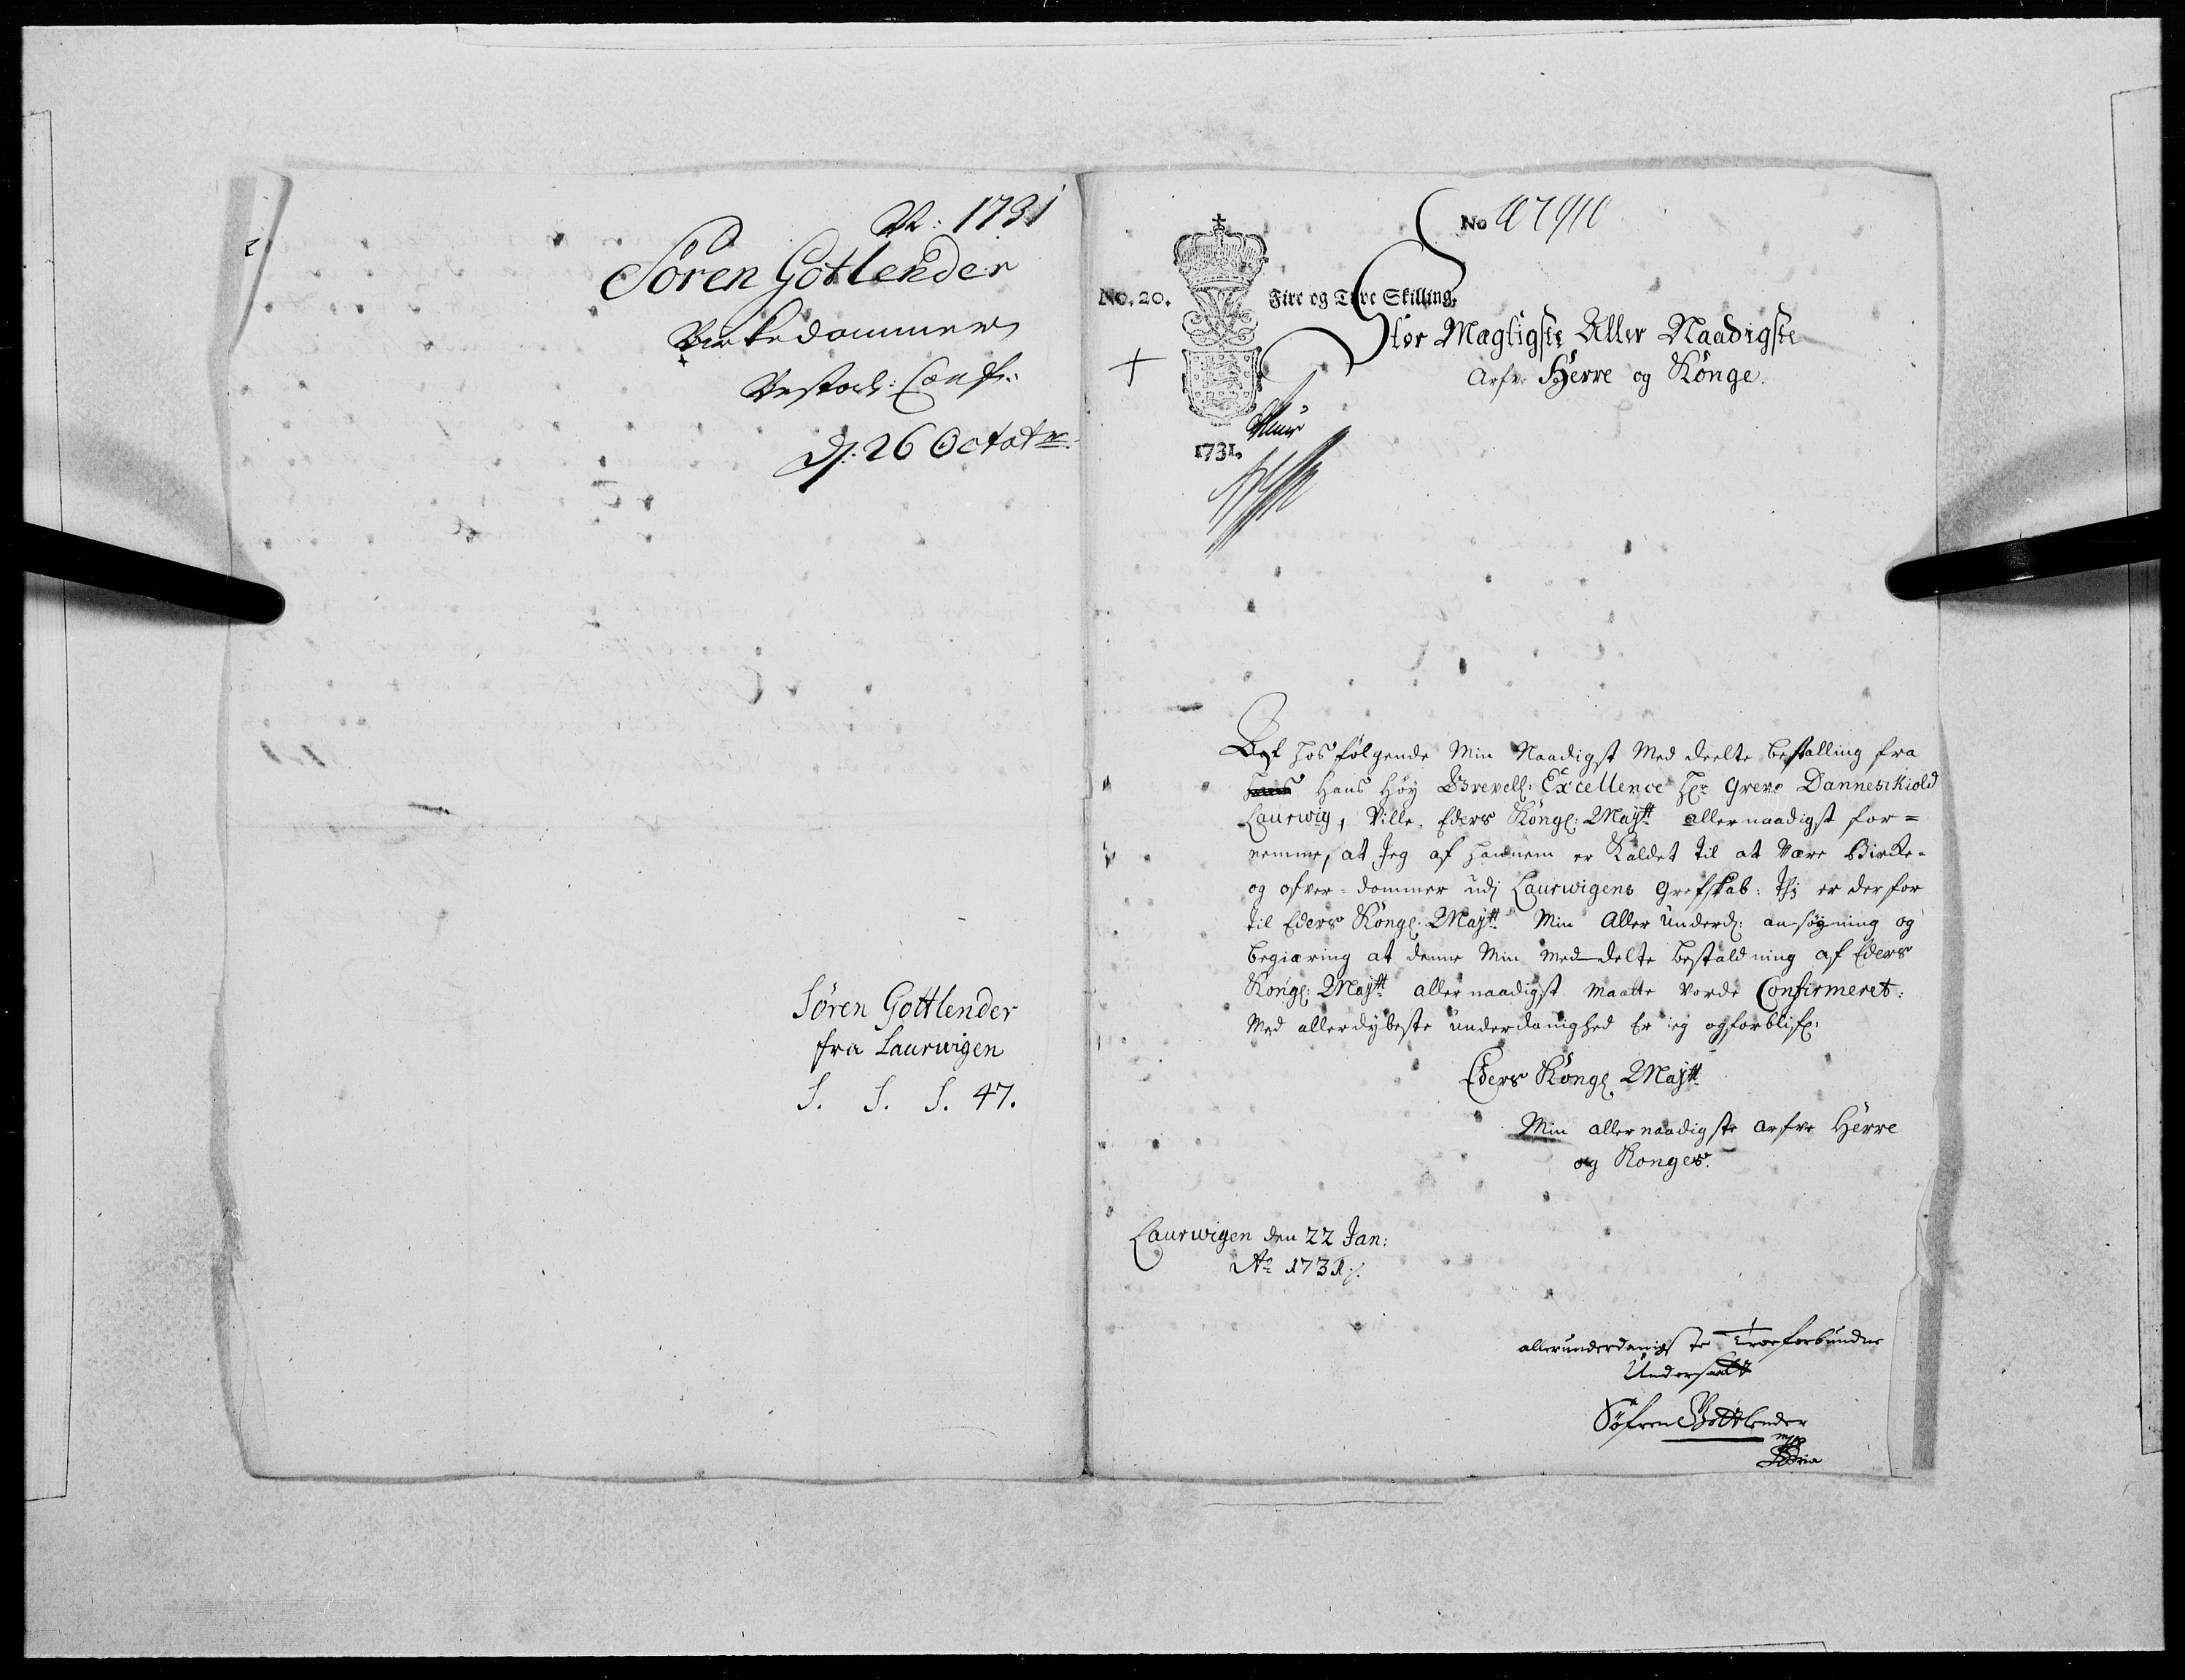 1731
Sören Gotlender
Birkedommer
Bestal: Conf:
d: 26 Octobr:
Søren Gottlender
fra Laurwigen
S. S. S. 47.
No
No. 20. Fire og Tyve Skilling.
1731.
Stor Mägtigste Aller Naadigste
Arfve Herre og Könge.
Af hosfølgende Min Naadigst Med deelte bestalling fra
Hans Høy Grevel: Excellence Hr. Greve Danneskiold
Laurwig, Ville Eders Köngl: Maytt allernaadigst for=
nemme, at Jeg af hannem er Kaldet til at Være Birke-
og ofver-dommer udj Laurwigens Grefskab: Thj er derfor
til Eders Köngl: Maytt Min Aller underd: ansøgning og
begiæring at denne Min Med delte bestaldning af Eders
Kongl: Maytt allernaadigst Maatte Vorde Confirmeret:
Med allerdybeste underdanighed Er ieg og forblifr:
Eders Köngl Maytt
Min allernaadigste Arfve Herre
og Konges.
Laurwigen den 22 Jan:
Ao 1731
allerunderdanigste Troeforbundne
Undersaatt
Søfren Gottlender